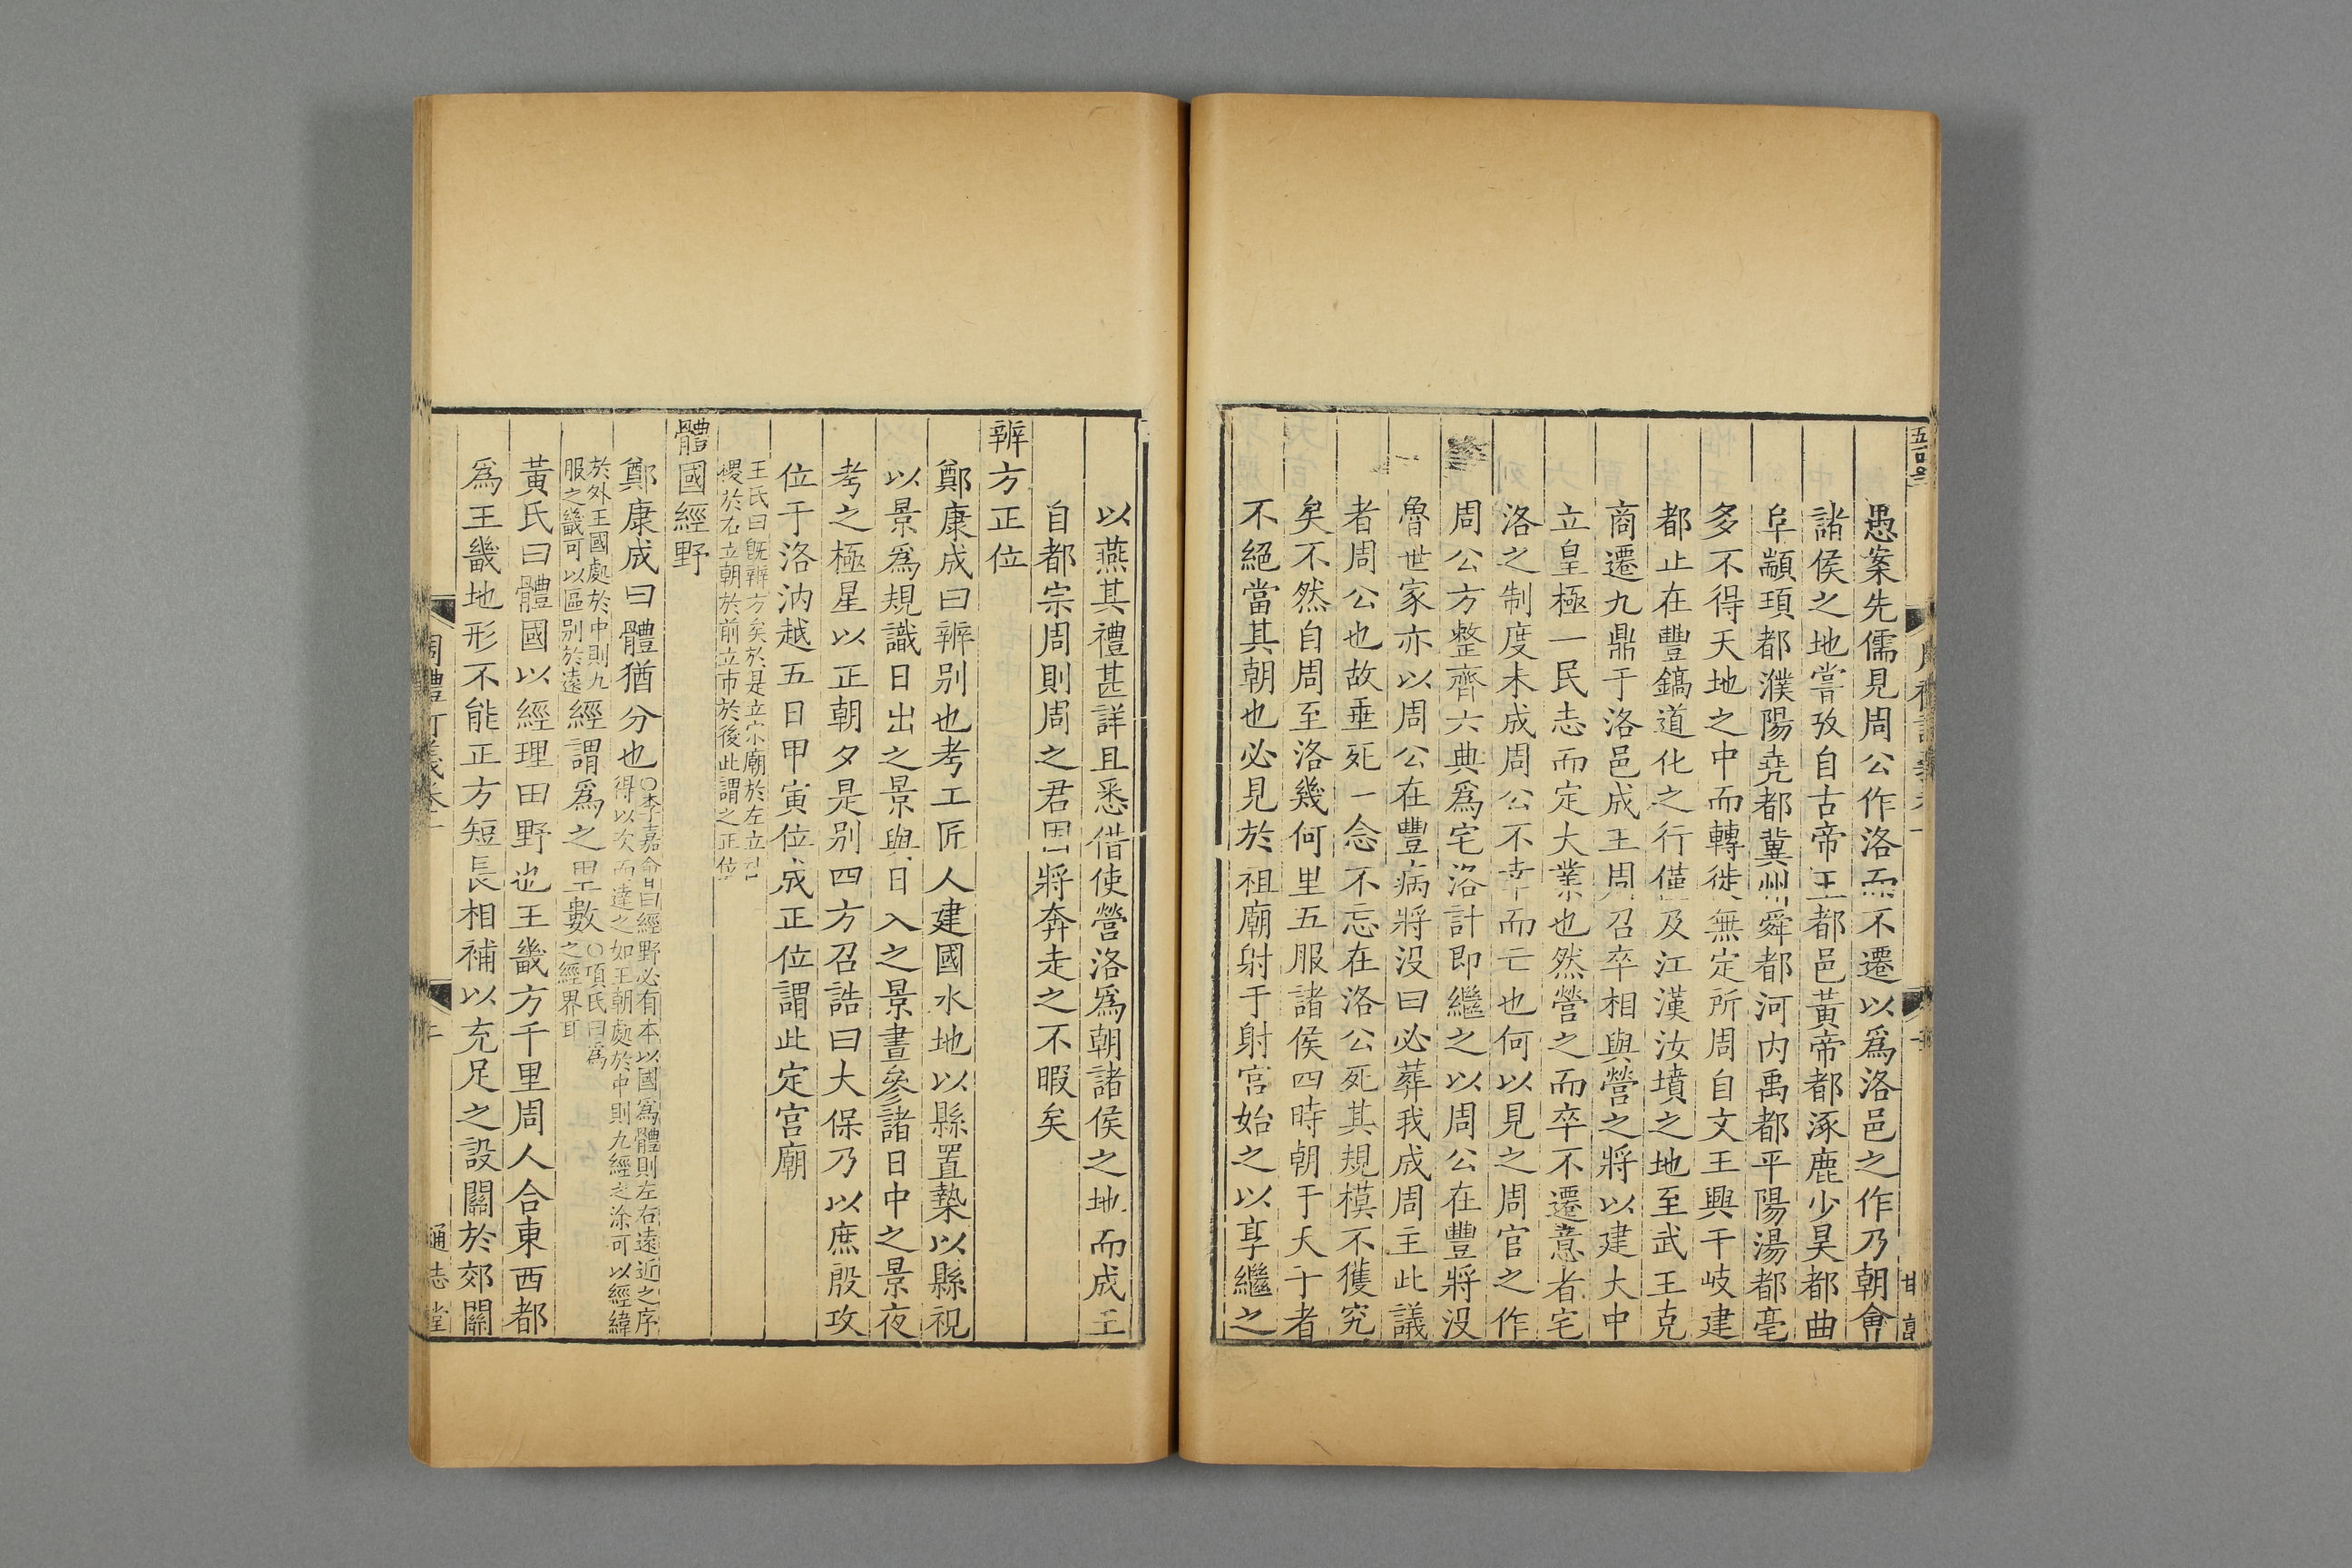 愚案先儒見周公作洛而不遷以爲洛邑之作乃朝會
諸侯之地嘗攷自古帝王都邑黃帝都涿鹿少昊都曲
阜顓頊都濮陽堯都冀州舜都河内禹都平陽湯都亳
多不得天地之中而轉徙無定所周自文王興于岐建
都止在豐鎬道化之行僅及江漢汝墳之地至武王克
商遷九鼎于洛邑成王周召卒相與營之將以建大中
立皇極一民志而定大業也然營之而卒不遷意者宅
洛之制度未成周公不幸而亡也何以見之周官之作
周公方整齊六典爲宅洛計即繼之以周公在豐將没
魯世家亦以周公在豐病將没曰必葬我成周主此議
者周公也故垂死一念不忘在洛公死其規模不獲究
矣不然自周至洛幾何里五服諸侯四時朝于天子者
不絕當其朝也必見於祖廟射于射宮始之以享繼之
以燕其禮甚詳且悉借使營洛爲朝諸侯之地而成王
自都宗周則周之君因將奔走之不暇矣
辨方正位
鄭康成曰辨别也考工匠人建國水地以縣置槷以縣視
以景爲規識日出之景與日入之景晝參諸日中之景夜
考之極星以正朝夕是别四方召誥曰大保乃以庶殷攻
位于洛汭越五日甲寅位成正位謂此定宫廟
王氏曰既辨方矣於是立宗廟於左立社
稷於右立朝於前立市於後此謂之正位
體國經野
鄭康成曰體猶分也○李嘉會曰經野必有本以國爲體則左右遠近之序
得以次而達之如王朝處於中則九經之涂可以經緯
於外王國處於中則九
服之畿可以區别於遠經謂爲之里數○項氏曰爲
之經界耳
黃氏曰體國以經理田野也王畿方千里周人合東西都
爲王畿地形不能正方短長相補以充足之設關於郊關
通志堂